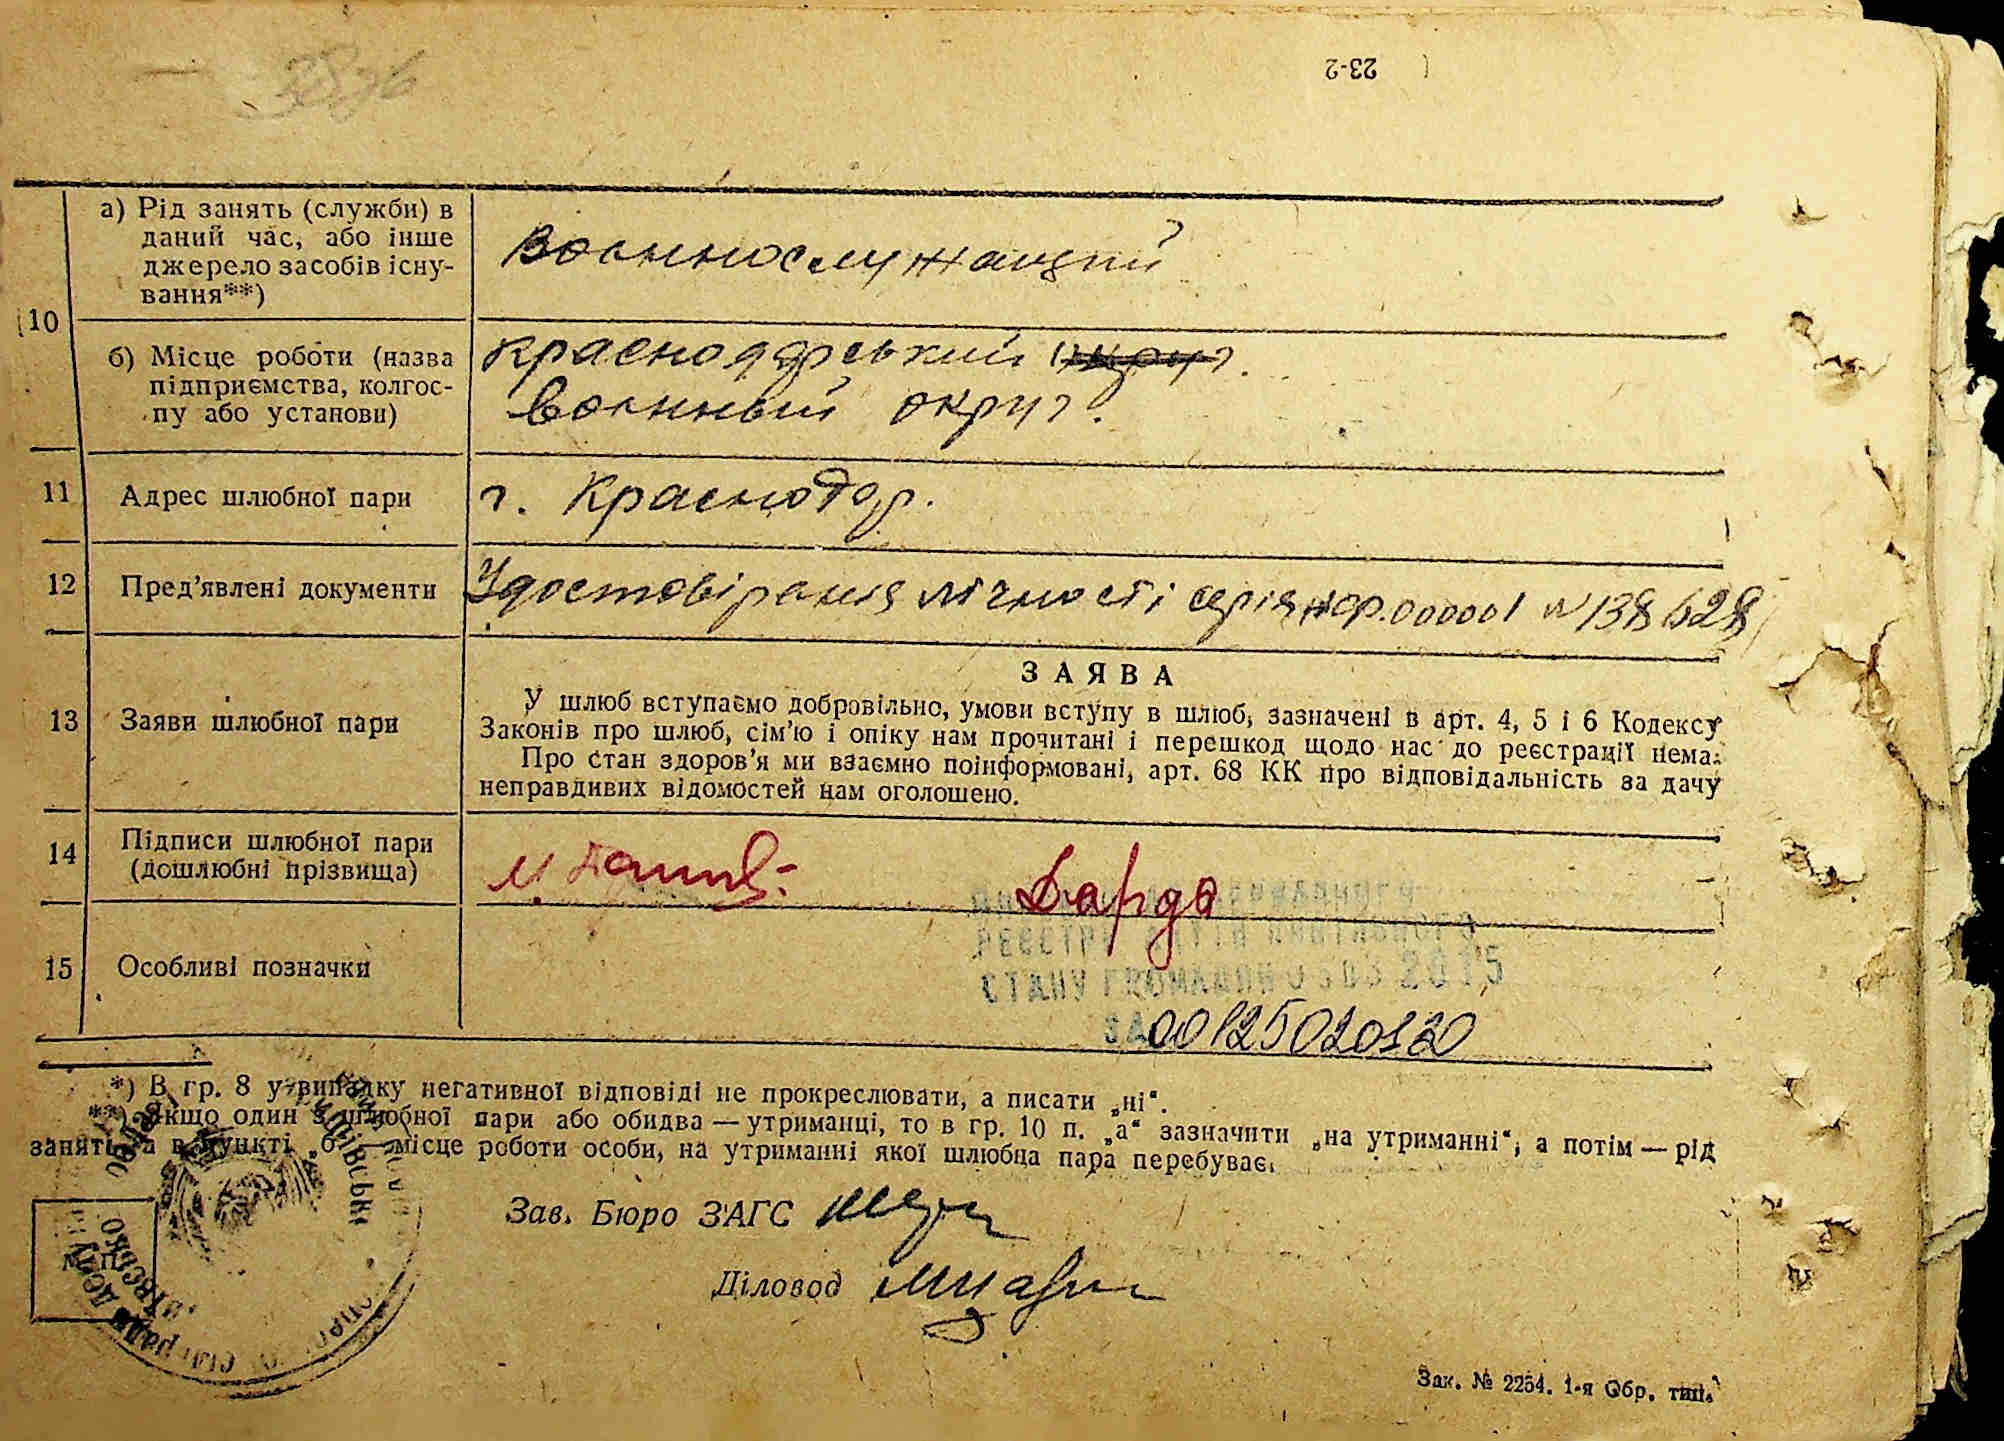 23-2
10
а) Рід занять (служби) в
даний час, або інше
джерело засобів існу-
вання**)
Военнослужащий
б) Місце роботи (назва
підприємства, колгос-
пу або установи)
Краснодарський
военный округ.
11
Адрес шлюбної пари
г. Краснодар.
12
Пред’явлені документи
Удостовірания лічності серія 000001 № 138628
13
Заяви шлюбної пари
ЗАЯВА
У шлюб вступаємо добровільно, умови вступу в шлюб, зазначені в арт. 4, 5 і 6 Кодексу
Законів про шлюб, сім’ю і опіку нам прочитані і перешкод щодо нас до реєстрації нема.
Про стан здоров’я ми взаємно поінформовані, арт. 68 КК про відповідальність за дачу
неправдивих відомостей нам оголошено.
14
Підписи шлюбної пари
(дошлюбні прізвища)
Барда
15
Особливі позначки
РЕЄСТРУ АКТІВ ЦИВІЛЬНОГО
СТАНУ ГРОМАДЯН 2015
ЗА 00125020120
*) В гр. 8 у випадку негативної відповіді не прокреслювати, а писати „ні“.
**) Якщо один з шлюбної пари або обидва — утриманці, то в гр. 10 п. „а“ зазначити „на утриманні“, а потім — рід
занять, а в пункті „б“ місце роботи особи, на утриманні якої шлюбна пара перебуває.
Зав. Бюро ЗАГС
Діловод
Зак. № 2254. 1-я Обр. тип.